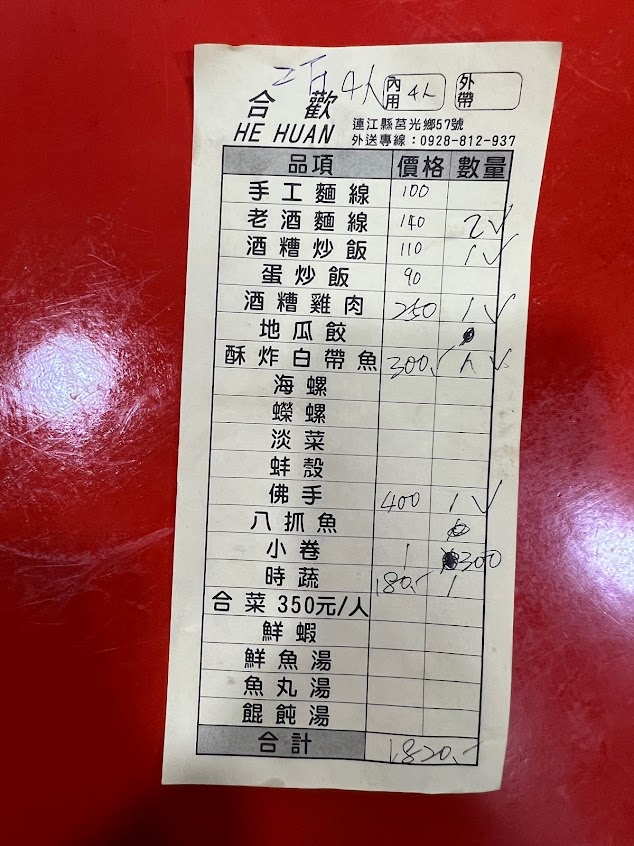 4人 內用 4人 外帶
合歡
HE HUAN
連江縣莒光鄉57號
外送專線：0928-812-937
品項 價格 數量
手工麵線 100
老酒麵線 140 2✓
酒糟炒飯 110 1✓
蛋炒飯 90
酒糟雞肉 250 1✓
地瓜餃
酥炸白帶魚 300.- ✓
海螺
蠑螺
淡菜
蚌殼
佛手 400 1✓
八抓魚
小卷 1 300
時蔬 180.- 1
合菜 350元/人
鮮蝦
鮮魚湯
魚丸湯
餛飩湯
合計 1,820.-